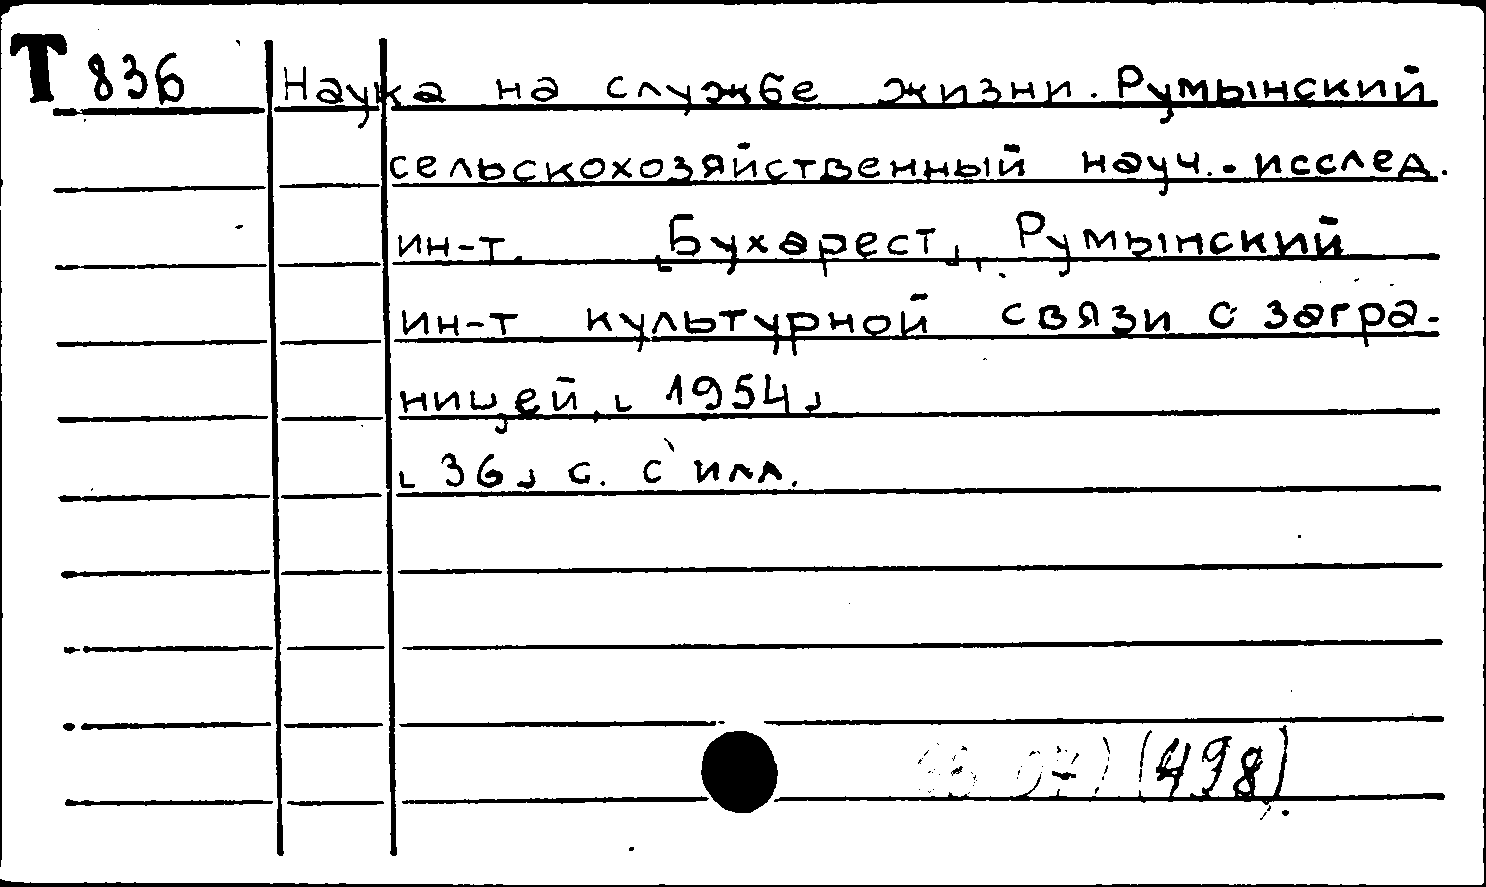 Т 836 Наука на службе жизни. Румынский
сельскохозяйственный науч.-исслед.
ин-т. [Бухарест], Румынский
ин-т культурной связи с загра-
ницей, [1954]
[36] с. с илл.
(498).